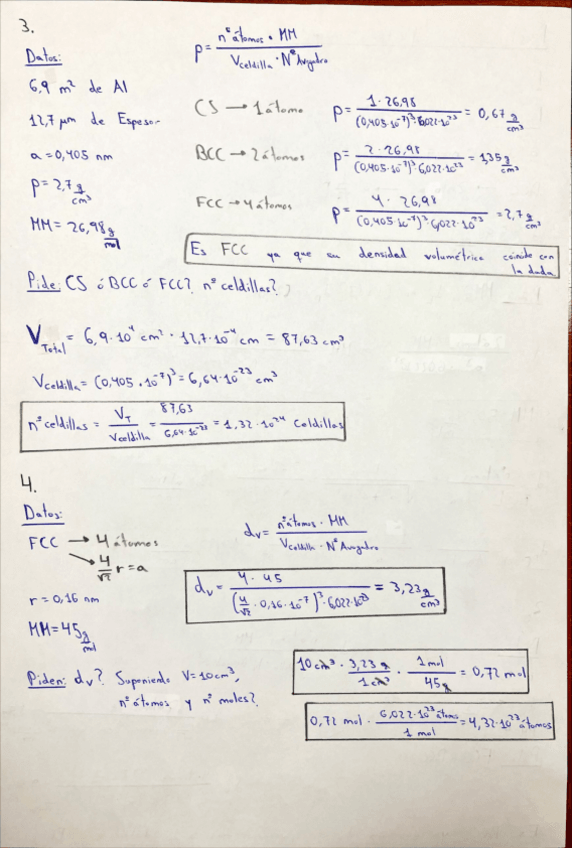 3.
Datos:
6,9 m² de Al
12,7 μm de Espesor
a = 0,405 nm
ρ = 2,7 g/cm³
MM = 26,98 g/mol
ρ = nº átomos · MM / Vceldilla · Nº Avogadro
CS → 1 átomo
ρ = 1 · 26,98 / (0,405·10⁻⁷)³ · 6,022·10²³ = 0,67 g/cm³
BCC → 2 átomos
ρ = 2 · 26,98 / (0,405·10⁻⁷)³ · 6,022·10²³ = 1,35 g/cm³
FCC → 4 átomos
ρ = 4 · 26,98 / (0,405·10⁻⁷)³ · 6,022·10²³ = 2,7 g/cm³
Es FCC ya que su densidad volumétrica coincide con
la dada
Pide: CS ó BCC ó FCC? nº celdillas?
VTotal = 6,9·10⁴ cm² · 12,7·10⁻⁴ cm = 87,63 cm³
Vceldilla = (0,405·10⁻⁷)³ = 6,64·10⁻²³ cm³
nº celdillas = VT / Vceldilla = 87,63 / 6,64·10⁻²³ = 1,32·10²⁴ Celdillas
4.
Datos:
FCC → 4 átomos
→ 4/√2 r = a
r = 0,16 nm
MM = 45 g/mol
dv = nº átomos · MM / Vceldilla · Nº Avogadro
dv = 4 · 45 / (4/√2 · 0,16·10⁻⁷)³ · 6,022·10²³ = 3,23 g/cm³
Piden: dv? Suponiendo V = 10 cm³,
nº átomos y nº moles?
10 cm³ · 3,23 g / 1 cm³ · 1 mol / 45 g = 0,72 mol
0,72 mol · 6,022·10²³ átomos / 1 mol = 4,32·10²³ átomos